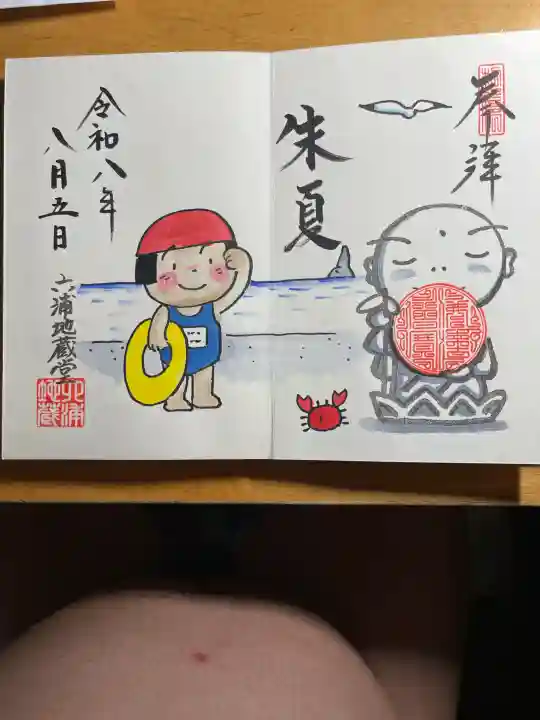 奉拝
朱夏
令和八年
八月五日
六浦地蔵堂